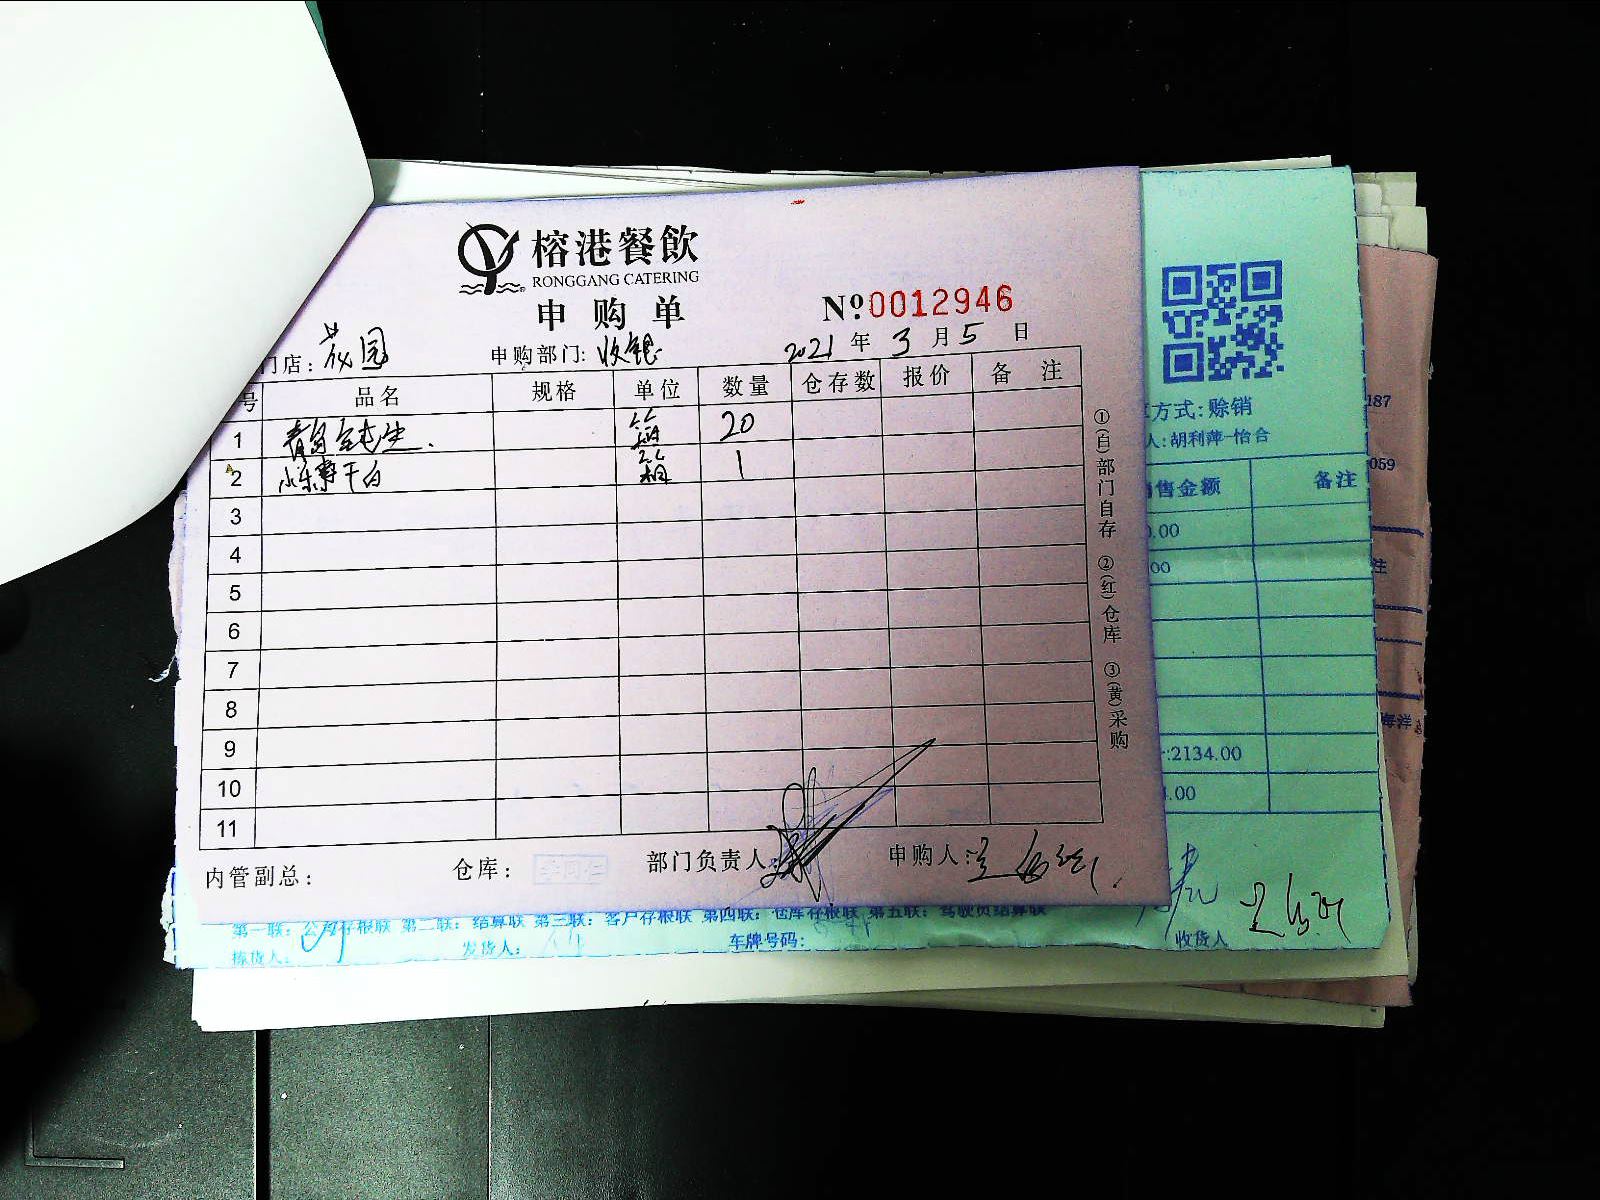 榕港餐飲
RONGGANG CATERING
申购单
№:0012946
门店: 茂园 申购部门: 收银 2021年3月5日
号 品名 规格 单位 数量 仓存数 报价 备注
1 青岛全麦 箱 20
2 干白 箱 1
3
4
5
6
7
8
9
10
11
①(白)部门自存 ②(红)仓库 ③(黄)采购
内管副总: 仓库: 李同仁 部门负责人: 申购人:
方式:赊销
人:胡利萍-怡合
售金额 备注
0.00
00
:2134.00
4.00
第一联: 公司存根联 第二联: 结算联 第三联: 客户存根联 第四联: 仓库存根联 第五联: 驾驶员结算联
拣货人: 发货人: 车牌号码: 收货人
187
059
注
海洋